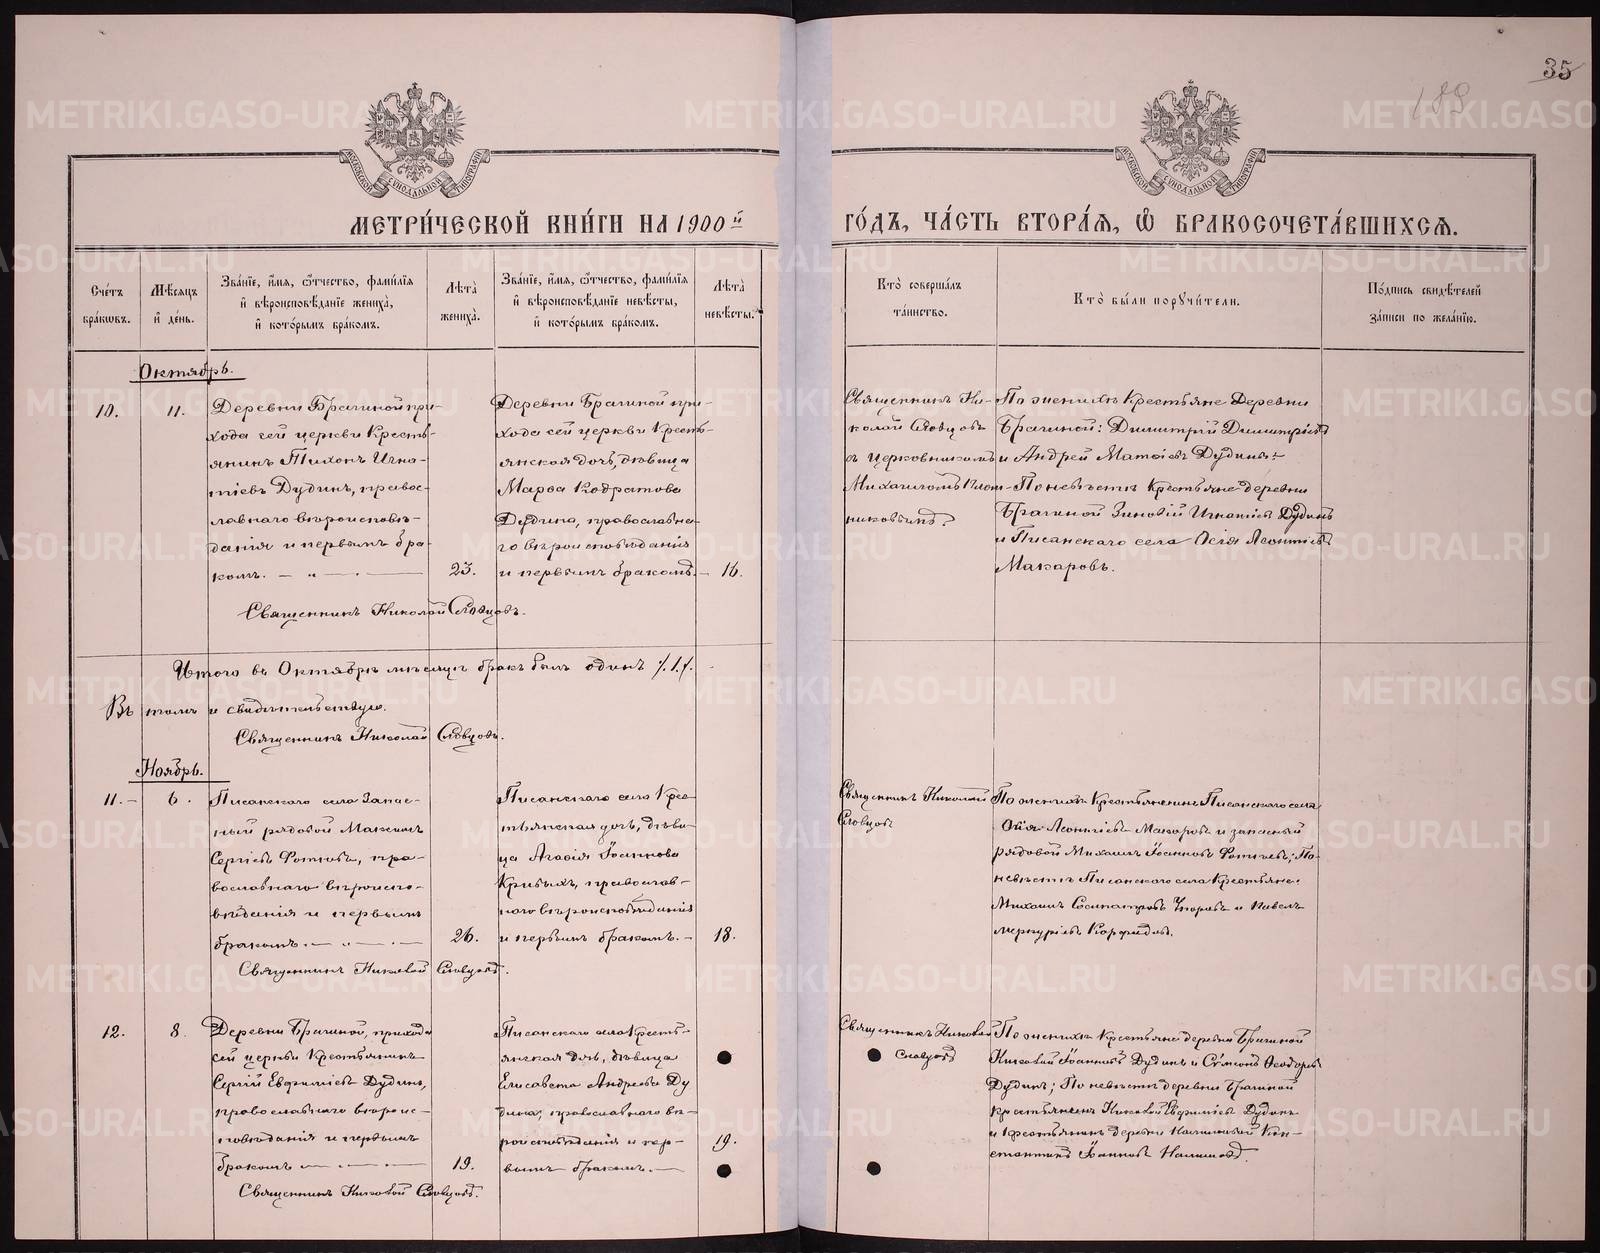 35
189
МОСКОВСКОЙ СѴНОДАЛЬНОЙ ТИПОГРАФІИ
МОСКОВСКОЙ СѴНОДАЛЬНОЙ ТИПОГРАФІИ
МЕТРИ́ЧЕСКОЙ КНИ́ГИ НА 1900й
ГО́ДЪ, ЧА́СТЬ ВТОРА́Я, Ѡ҆ БРАКОСОЧЕТА́ВШИХСЯ.
Сче́тъ
бра́кѡвъ.
Мѣ́сяцъ
и҆ де́нь.
Зва́нїе, и҆́мя, ѻ҆́тчество, фами́лїя
и҆ вѣроисповѣ́данїе жениха̀,
и҆ кото́рымъ бра́комъ.
Лѣ́та̀
жениха̀.
Зва́нїе, и҆́мя, ѻ҆́тчество, фами́лїя
и҆ вѣроисповѣ́данїе невѣ́сты,
и҆ кото́рымъ бра́комъ.
Лѣ́та̀
невѣ́сты.
Кто̀ соверша́лъ
та́инство.
Кто̀ бы́ли порꙋчи́тели.
По́дпись свидѣ́телей
за́писи по жела́нїю.
Октябрь.
10.
11.
Деревни Брагиной при-
хода сей церкви Кресть-
янинъ Тихонъ Игна-
тіевъ Дудинъ, правос-
лавнаго вѣроисповѣ-
данія и первымъ бра-
комъ. — „ —
23.
Деревни Брагиной при-
хода сей церкви Кресть-
янская дочь, дѣвица
Марѳа Кодратова
Дудина, православна-
го вѣроисповѣданія
и первымъ бракомъ. —
16.
Священникъ Николай Словцовъ.
Священникъ Ни-
колай Словцовъ
съ церковникомъ
Михаиломъ Плот-
никовымъ.
По женихѣ Крестьяне Деревни
Брагиной: Димитрій Димитріевъ
и Андрей Матѳіевъ Дудины.
По невѣстѣ Крестьяне деревни
Брагиной Зиновій Игнатіевъ Дудинъ
и Писанскаго села Осія Леонтіевъ
Макаровъ.
Итого въ Октябрѣ мѣсяцѣ бракъ былъ одинъ /.1./.
Въ томъ и свидѣтельствую.
Священникъ Николай Словцовъ.
Ноябрь.
11. —
6.
Писанскаго села Запас-
ный рядовой Максимъ
Сергіевъ Фотіевъ, пра-
вославнаго вѣроиспо-
вѣданія и первымъ
бракомъ. — „ —
26.
Писанскаго села Кре-
стьянская дочь, дѣви-
ца Агаѳія Іоаннова
Кривыхъ, православ-
наго вѣроисповѣданія
и первымъ бракомъ. —
18.
Священникъ Николай Словцовъ.
Священникъ Николай
Словцовъ
По женихѣ Крестьянинъ Писанскаго села
Осія Леонтіевъ Макаровъ и запасный
рядовой Михаилъ Іоанновъ Фотіевъ; По
невѣстѣ Писанскаго села Крестьяне:
Михаилъ Сосипатровъ и Павелъ
Меркуріевъ
12.
8.
Деревни Брагиной, прихода
сей церкви Крестьянинъ
Сергій Евфиміевъ Дудинъ,
православнаго вѣроис-
повѣданія и первымъ
бракомъ —
19.
Писанскаго села Кресть-
янская дочь, дѣвица
Елисавета Андреева Ду
дина, православнаго вѣ-
роисповѣданія и пер-
вымъ бракомъ. —
19.
Священникъ Николай Словцовъ.
Священникъ Николай
Словцовъ
По женихѣ Крестьяне деревни Брагиной
Николай Іоанновъ Дудинъ и Сѵмеонъ Ѳеодоровъ
Дудинъ; По невѣстѣ деревни Брагиной
крестьянинъ Николай Евфиміевъ Дудинъ
и крестьянинъ деревни Налимовой Кон-
стантинъ Іоанновъ Налимовъ.
METRIKI.GASO-URAL.RU